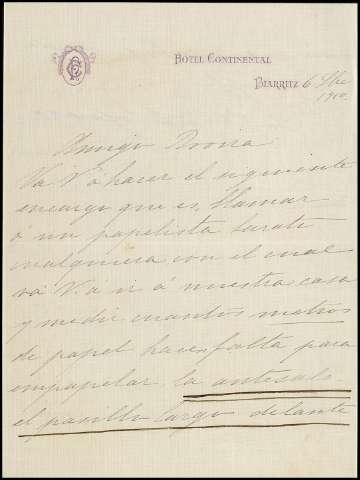 HÔTEL CONTINENTAL
BIARRITZ 6
Amigo Rovira
Va V. á hacer el siguiente
encargo que es, llamar
á un papelista barato
cualquiera con el cual
vá V. á ir á nuestra casa
y medir cuantos metros
de papel hacen falta para
empapelar la antesala
el pasillo largo delante